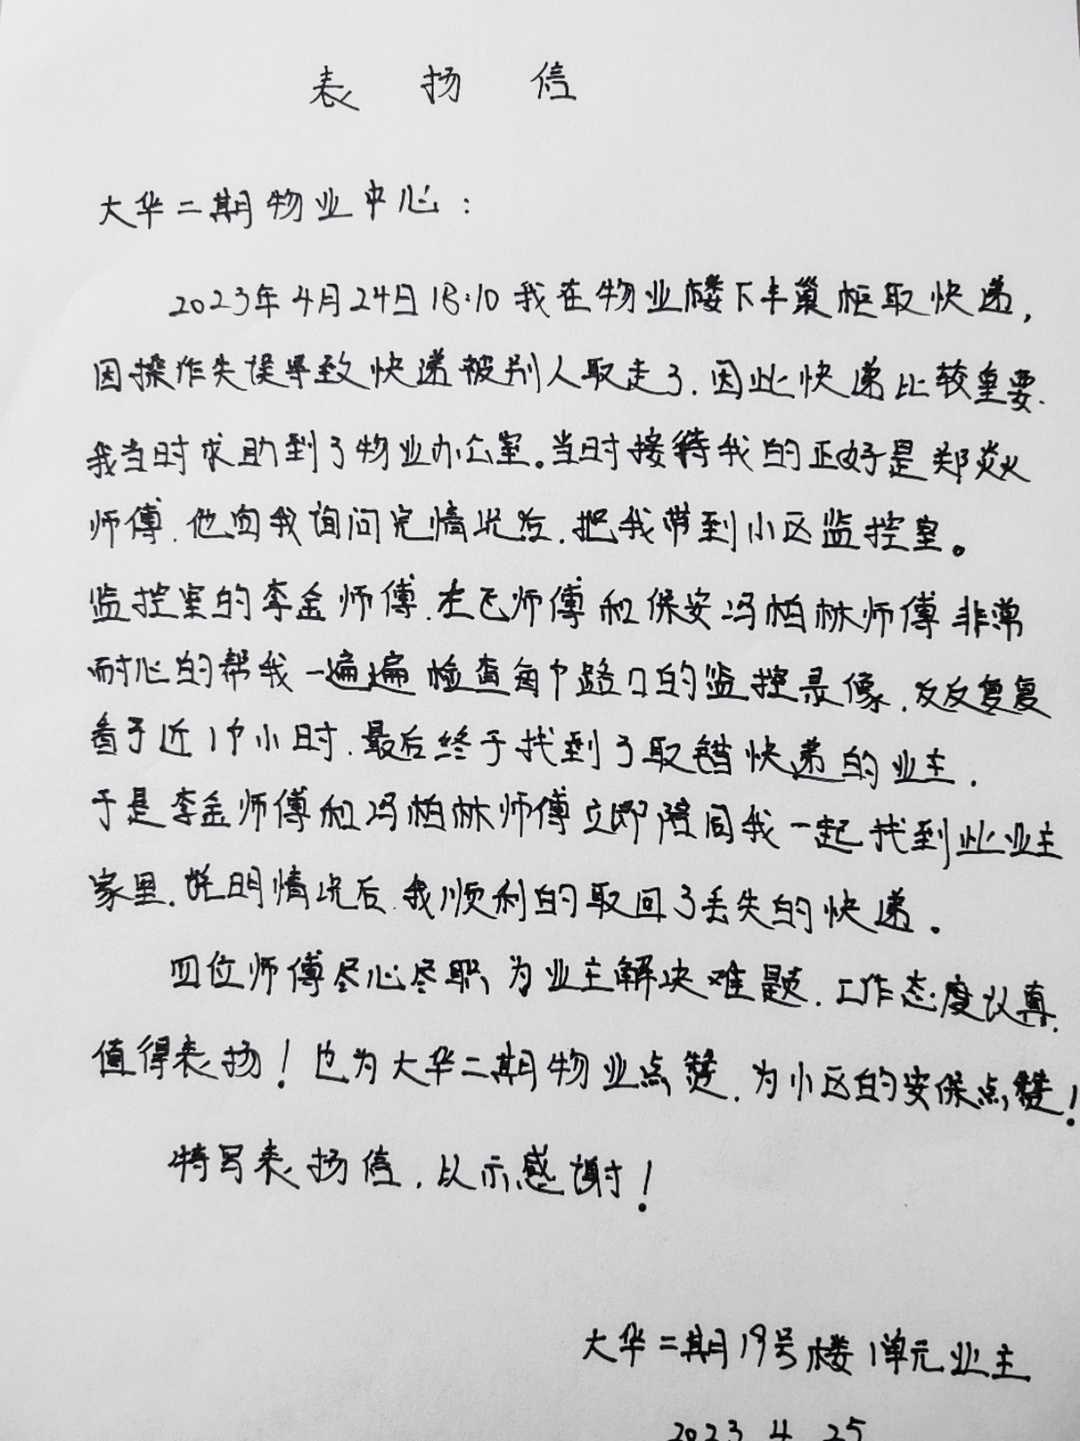 表扬信
大华二期物业中心:
2023年4月24日18:10我在物业楼下丰巢柜取快递,
因操作失误导致快递被别人取走了.因此快递比较重要.
我当时求助到了物业办公室。当时接待我的正好是郑焱
师傅.他向我询问完情况后.把我带到小区监控室。
监控室的李金师傅.左飞师傅和保安冯柏林师傅非常
耐心的帮我一遍遍检查每个路口的监控录像,反反复复
看了近1个小时.最后终于找到了取错快递的业主.
于是李金师傅和冯柏林师傅立即陪同我一起找到此业主
家里.说明情况后.我顺利的取回了丢失的快递.
四位师傅尽心尽职为业主解决难题.工作态度认真.
值得表扬!也为大华二期物业点赞.为小区的安保点赞!
特写表扬信.以示感谢!
大华二期19号楼1单元业主
2023.4.25